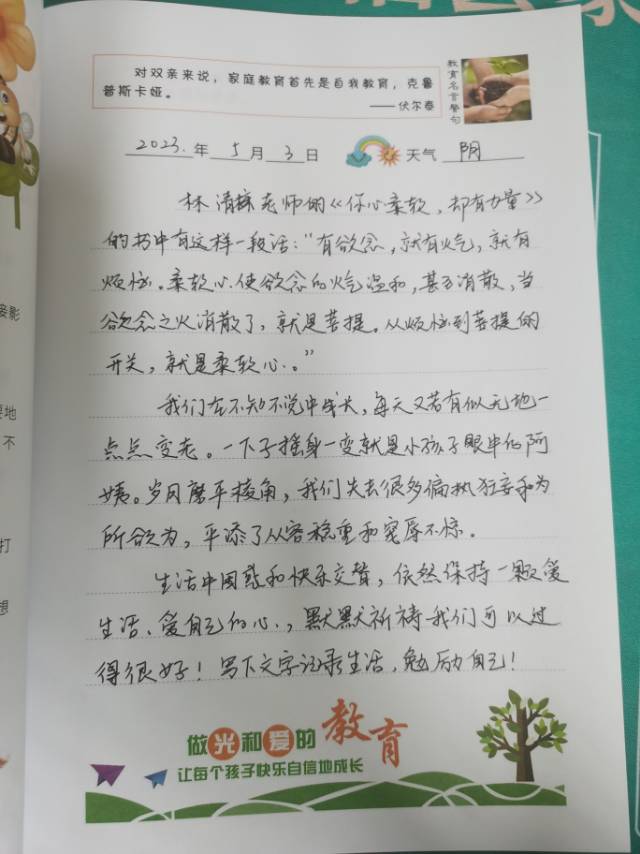 对双亲来说，家庭教育首先是自我教育，克鲁
普斯卡娅。
——伏尔泰
教育名言警句
2023.年 5月 3日 天气 阴
林清玄老师的《你心柔软，却有力量》
的书中有这样一段话：“有欲念，就有火气，就有
烦恼。柔软心使欲念的火气温和，甚至消散，当
欲念之火消散了，就是菩提。从烦恼到菩提的
开关，就是柔软心。”
我们在不知不觉中成长，每天又若有似无地一
点点变老。一下子摇身一变就是小孩子眼中的阿
姨。岁月磨平棱角，我们失去很多偏执狂妄和为
所欲为，平添了从容稳重和宠辱不惊。
生活中困惑和快乐交替，依然保持一颗爱
生活、爱自己的心，默默祈祷我们可以过
得很好！写下文字记录生活，勉励自己！
做光和爱的教育
让每个孩子快乐自信地成长
影
地
不
打
想